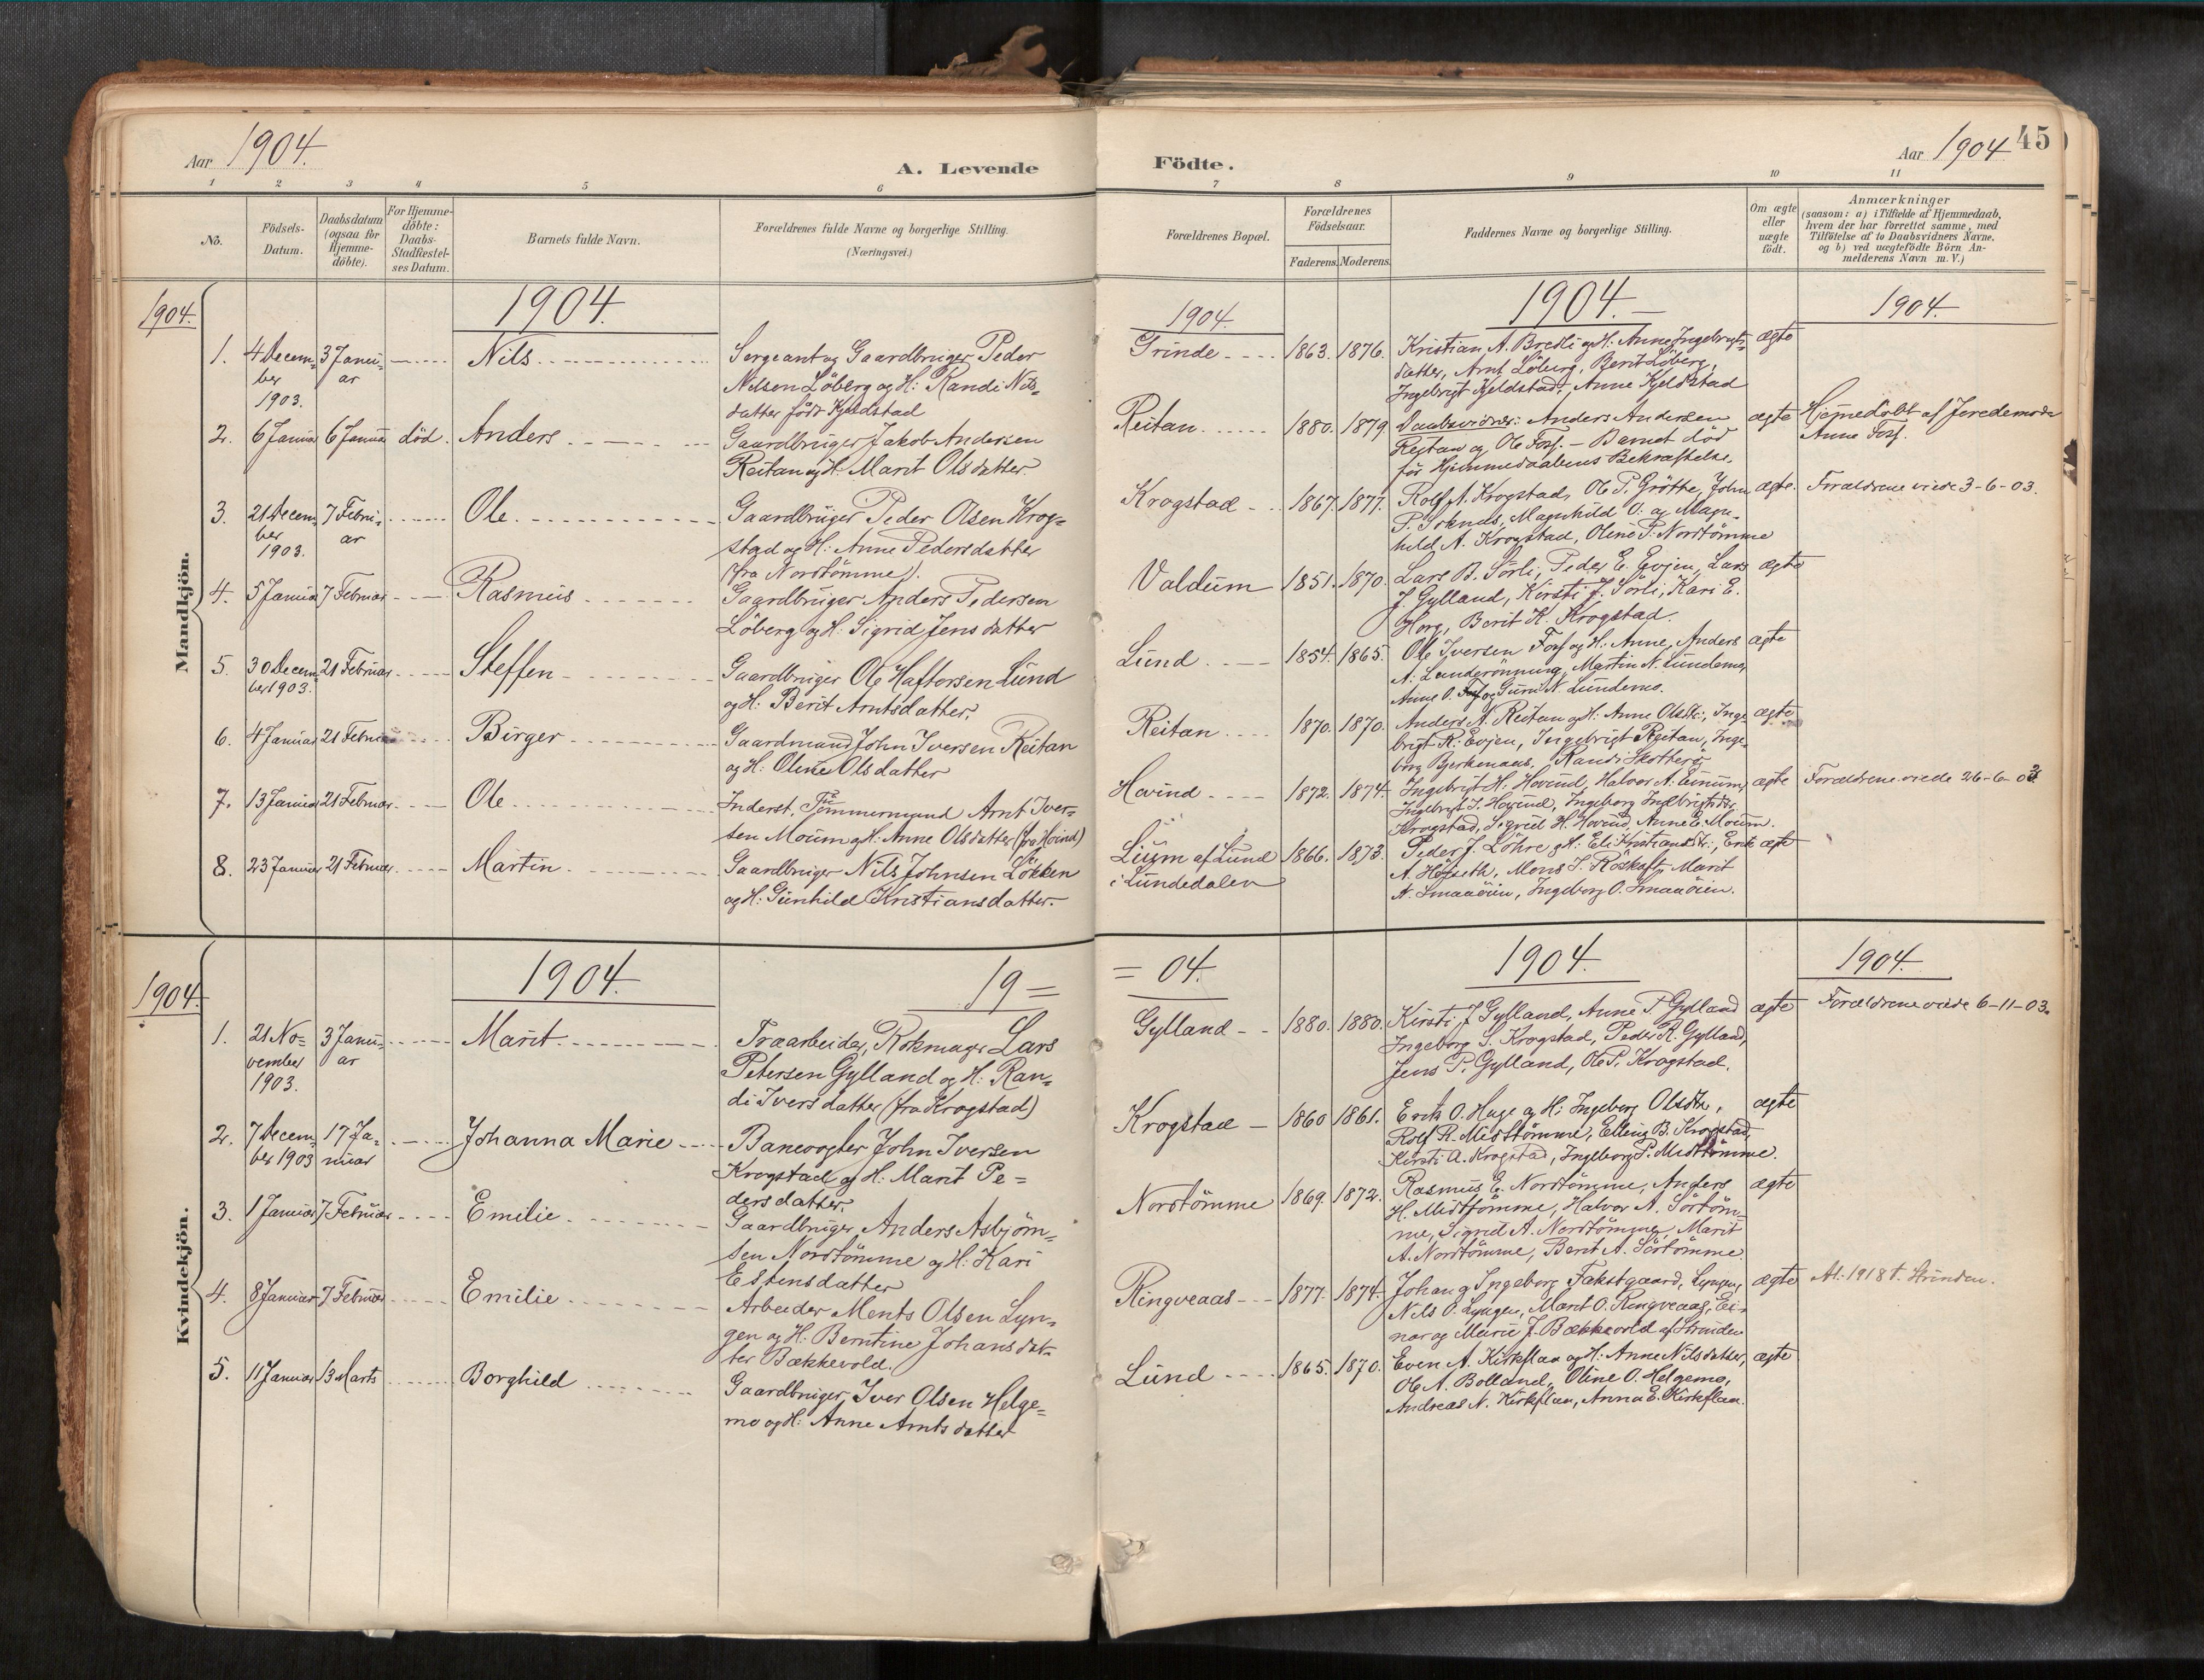 Aar 1904.
A. Levende
1 2 3 4 5 6
No.
Födsels-
Datum.
Daabsdatum
(ogsaa for
Hjemme-
döbte).
For Hjemme-
döbte:
Daabs-
Stadfæstel-
ses Datum.
Barnets fulde Navn.
Forældrenes fulde Navne og borgerlige Stilling.
(Næringsvei.)
Mandkjön.
1904.
1904.
1. 4 Decem- 3 Janu- Nils Sergeant og Gaardbruger Peder
ber ar Nilsen Löberg og H: Randi Nils-
1903. datter født Kjeldstad
2. 6 Januar 6 Januar död. Anders Gaardbruger Jakob Andersen
Reitan og H: Marit Olsdatter
3. 21 Decem- 7 Febru- Ole Gaardbruger Peder Olsen Krog-
ber ar stad og H: Anne Pedersdatter
1903. (fra Nordtömme).
4. 5 Januar 7 Februar Rasmus Gaardbruger Anders Pedersen
Löberg og H: Sigrid Jensdatter
5. 30 Decem- 21 Februar Steffen Gaardbruger Ole Haftorsen Lund
ber 1903. og H: Berit Arntsdatter.
6. 4 Januar 21 Februar Birger Gaardmand John Iversen Reitan
og H: Oline Olsdatter
7. 13 Januar 21 Februar Ole Inderst, Tömmermand Arnt Iver-
sen Moum og H: Anne Olsdatter (fra Hovind)
8. 23 Januar 21 Februar Martin Gaardbruger Nils Johnsen Lökken
og H: Gunhild Kristiansdatter.
Kvindekjön.
1904.
1904. 19 =
1. 21 No- 3 Janu- Marit Træarbeider, Lars
vember ar Petersen Gylland og H: Ran-
1903. di Iversdatter (fra Krogstad)
2. 7 Decem- 17 Ja- Johanna Marie Banevogter John Iversen
ber 1903 nuar Krogstad og H: Marit Pe-
dersdatter.
3. 1 Januar 7 Februar Emilie Gaardbruger Anders Asbjörn-
sen Nordtömme og H: Kari
Estensdatter
4. 8 Januar 7 Februar Emilie Arbeider Ments Olsen Lyn-
gen og H: Berntine Johansdat-
ter Bækkevold.
5. 11 Januar 13 Marts Borghild Gaardbruger Iver Olsen Helge-
mo og H: Anne Arntsdatter
Födte.
Aar 1904
45
7 8 9 10 11
Forældrenes Bopæl.
Forældrenes
Födselsaar.
Faderens. Moderens.
Faddernes Navne og borgerlige Stilling.
Om ægte
eller
uægte
födt.
Anmærkninger
(saasom: a) i Tilfælde af Hjemmedaab,
hvem der har forrettet samme, med
Tilföielse af to Daabsvidners Navne,
og b) ved uægtefödte Börn An-
melderens Navn m. V.)
1904. 1904. 1904.
Grinde 1863. 1876. Kristian A. Bredli og H: Anne Ingebrigts- ægte
datter, Arnt Löberg, Berit Löberg,
Ingebrigt Kjeldstad, Anne Kjeldstad
Reitan 1880. 1879 Daabsvidner: Anders Andersen ægte Hjemedöbt af Jordemoder
Reitan og Ole Foss. — Barnet död Anne Foss.
før Hjemmedaabens Bekræftelse.
Krogstad 1867. 1877. Rolf A. Krogstad, Ole P. Grötte, John ægte. Forældrene viede 3-6-03.
Magnhild O: og Magn-
hild A. Krogstad, Oline P. Nordtömme
Valdum 1851. 1870. Lars B. Sörli, Peder E. Evjen, Lars ægte
J. Gylland, Kirsti J. Sörli, Kari E.
Horg, Berit H. Krogstad.
Lund 1854. 1865. Ole Iversen Foss og H: Anne, Anders ægte
A. Lunderönning, Martin N. Lundemo,
Anne O. Foss og Guru N. Lundemo.
Reitan 1870. 1870. Anders A. Reitan og H: Anne Olsdtr., Inge- ægte
brigt R. Evjen, Ingebrigt Reitan, Inge-
borg Bjerkenaas, Randi
Hovind 1872. 1874. Ingebrigt H. Hovind, Halvor A. ægte Forældrene viede 26-6-03
Ingebrigt J. Hovind, Ingeborg
Krogstad, Sigrid H. Hovind, Anne E. Moum.
Lium af Lund 1866. 1873. Peder J. Löhre og H: Eli Kristiansdtr., Erik ægte
i Lundedalen A. Högseth, Mons J. Röskaft, Marit
A. Smaaöien, Ingeborg O. Smaaöien.
= 04. 1904. 1904.
Gylland 1880. 1880. Kirsti J Gylland, Anne P. Gylland ægte Forældrene viede 6-11-03.
Ingeborg S. Krogstad, Peder R. Gylland,
Jens P. Gylland, Ole P. Krogstad.
Krogstad 1860 1861. Erik O. Hage og H: Ingeborg Olsdtr, ægte
Rolf R. Midttömme, Elling B. Krogstad,
Kirsti A. Krogstad, Ingeborg P. Midttömme.
Nordtömme 1869. 1872. Rasmus E. Nordtömme, Anders ægte
H. Midttömme, Halvor A. Sörtöm-
me, Sigrid A. Nordtömme, Marit
A. Nordtömme, Berit A. Sörtömme
Ringveaas 1877. 1874. Johan og Ingeborg Fakstgaard, Lyngen, ægte At. 1918 t. Strinden.
Nils O. Lyngen, Marit O. Ringveaas, Ei-
nar og Marie J. Bækkevold af Strinden
Lund 1865. 1870. Even A. Kirkflaa og H: Anne Nilsdatter, ægte
Ole A. Bolland, Oline O. Helgemo,
Andreas N. Kirkflaa, Anna E. Kirkflaa.